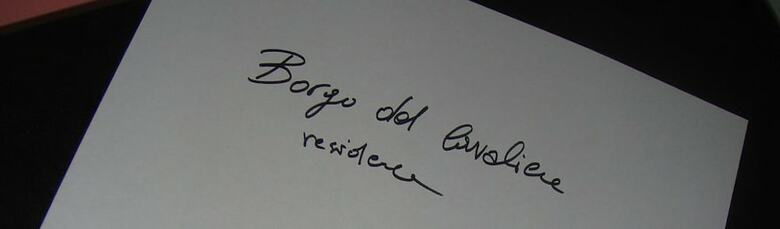 Borgo del Cavaliere
residence